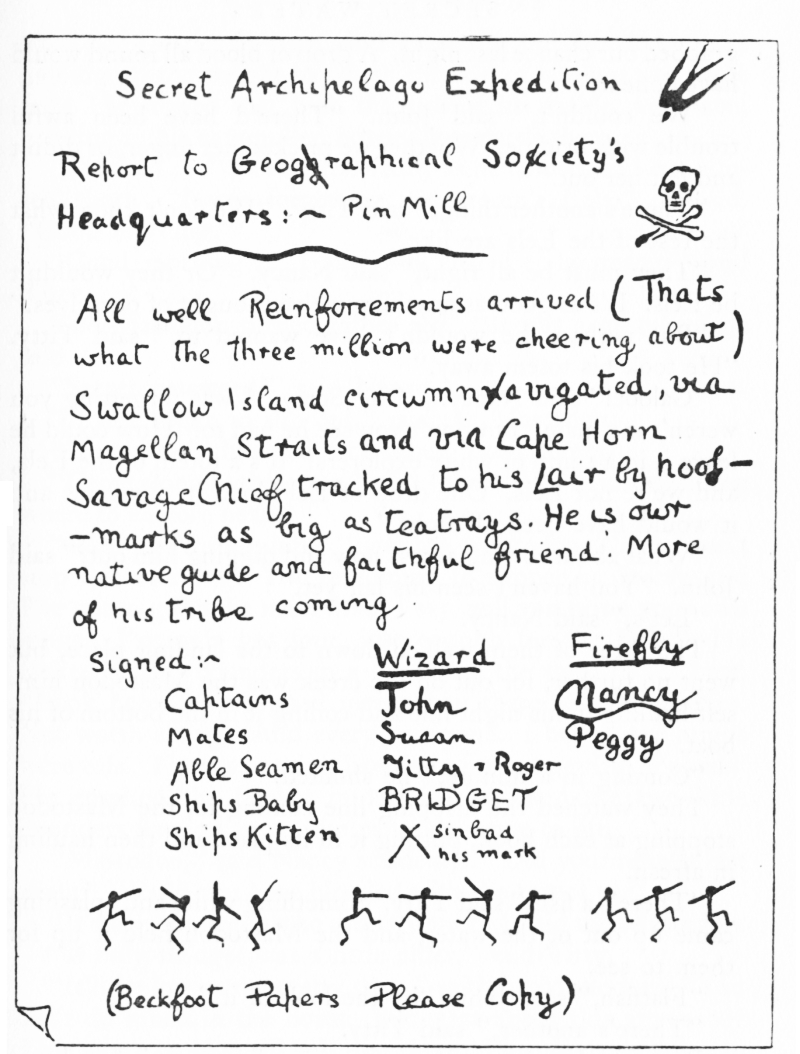 Secret Archipelago Expedition
Report to Geographical Society's
Headquarters:~ Pin Mill
All well Reinforcements arrived (Thats
what the three million were cheering about)
Swallow Island circumnavigated, via
Magellan Straits and via Cape Horn
Savage Chief tracked to his Lair by hoof-
-marks as big as teatrays. He is our
native guide and faithful friend. More
of his tribe coming.
Signed:~ Wizard Firefly
Captains John Nancy
Mates Susan Peggy
Able Seamen Titty & Roger
Ships Baby BRIDGET
Ships Kitten X sinbad
his mark
(Beckfoot Papers Please Copy)